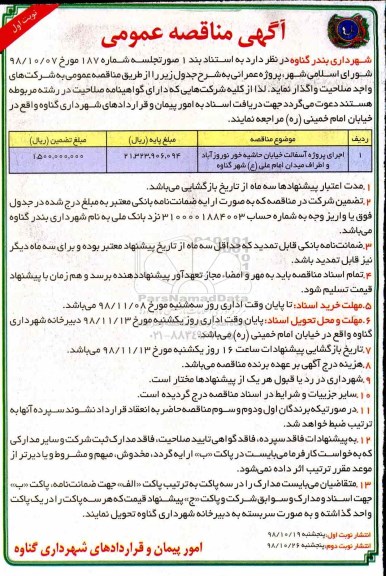 نوبت اول
آگهی مناقصه عمومی
شهرداری بندر گناوه در نظر دارد به استناد بند ۱ صورتجلسه شماره ۱۸۷ مورخ ۹۸/۱۰/۰۷
شورای اسلامی شهر، پروژه عمرانی به شرح جدول زیر را از طریق مناقصه عمومی به شرکت‌های
واجد صلاحیت واگذار نماید. لذا از کلیه شرکت‌هایی که دارای گواهینامه صلاحیت در رشته مربوطه
هستند دعوت می‌گردد جهت دریافت اسناد به امور پیمان و قراردادهای شهرداری گناوه واقع در
خیابان امام خمینی (ره) مراجعه نمایند.
ردیف موضوع مناقصه مبلغ پایه (ریال) مبلغ تضمین (ریال)
۱ اجرای پروژه آسفالت خیابان حاشیه خور نوروزآباد ۲۱،۳۲۳،۹۰۶،۰۹۴ ۱،۵۰۰،۰۰۰،۰۰۰
و اطراف میدان امام علی (ع) شهر گناوه
۱. مدت اعتبار پیشنهادها سه ماه از تاریخ بازگشایی می‌باشد.
۲. تضمین شرکت در مناقصه که به صورت ارایه ضمانت‌نامه بانکی معتبر به مبلغ درج شده در جدول
فوق یا واریز وجه به شماره حساب ۳۱۰۰۰۰۱۸۸۴۰۰۳ نزد بانک ملی به نام شهرداری بندر گناوه
می‌باشد.
۳. ضمانت‌نامه بانکی قابل تمدید که حداقل سه ماه از تاریخ پیشنهاد معتبر بوده و برای سه ماه دیگر
نیز قابل تمدید باشد.
۴. تمام اسناد مناقصه باید به مهر و امضا، مجاز تعهدآور پیشنهاددهنده برسد و هم زمان با پیشنهاد
قیمت تسلیم شود.
۵. مهلت خرید اسناد: تا پایان وقت اداری روز سه‌شنبه مورخ ۹۸/۱۱/۰۸ می‌باشد.
۶. مهلت و محل تحویل اسناد: پایان وقت اداری روز یکشنبه مورخ ۹۸/۱۱/۱۳ دبیرخانه شهرداری
گناوه واقع در خیابان امام خمینی (ره) می‌باشد.
۷. تاریخ بازگشایی پیشنهادات ساعت ۱۶ روز یکشنبه مورخ ۹۸/۱۱/۱۳ می‌باشد.
۸. هزینه درج آگهی بر عهده برنده مناقصه می‌باشد.
۹. شهرداری در رد یا قبول هر یک از پیشنهادها مختار است.
۱۰. سایر جزییات و شرایط در اسناد مناقصه درج گردیده است.
۱۱. در صورتیکه برندگان اول و دوم و سوم مناقصه حاضر به انعقاد قرارداد نشوند سپرده آنها به
ترتیب ضبط خواهد شد.
۱۲. به پیشنهادات فاقد سپرده، فاقد گواهی تایید صلاحیت، فاقد مدارک ثبت شرکت و سایر مدارکی
که به خواست کارفرما می‌بایست در پاکت «ب» ارایه گردد، مخدوش، مبهم و مشروط و یا دیرتر از
موعد مقرر ترتیب اثر داده نمی‌شود.
۱۳. متقاضیان می‌بایست مدارک را در سه پاکت به ترتیب پاکت «الف» جهت ضمانت‌نامه، پاکت «ب»
جهت اسناد و مدارک و سوابق شرکت و پاکت «ج» پیشنهاد قیمت که هر سه پاکت را در یک پاکت
واحد گذاشته و به صورت سربسته به دبیرخانه شهرداری گناوه تحویل نمایند.
انتشار نوبت اول: پنجشنبه ۹۸/۱۰/۱۹
انتشار نوبت دوم: پنجشنبه ۹۸/۱۰/۲۶
امور پیمان و قراردادهای شهرداری گناوه